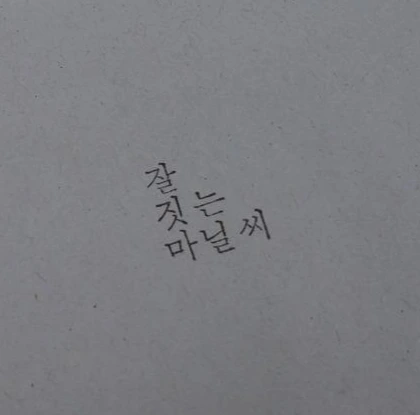 잘
짓는
마닐 씨